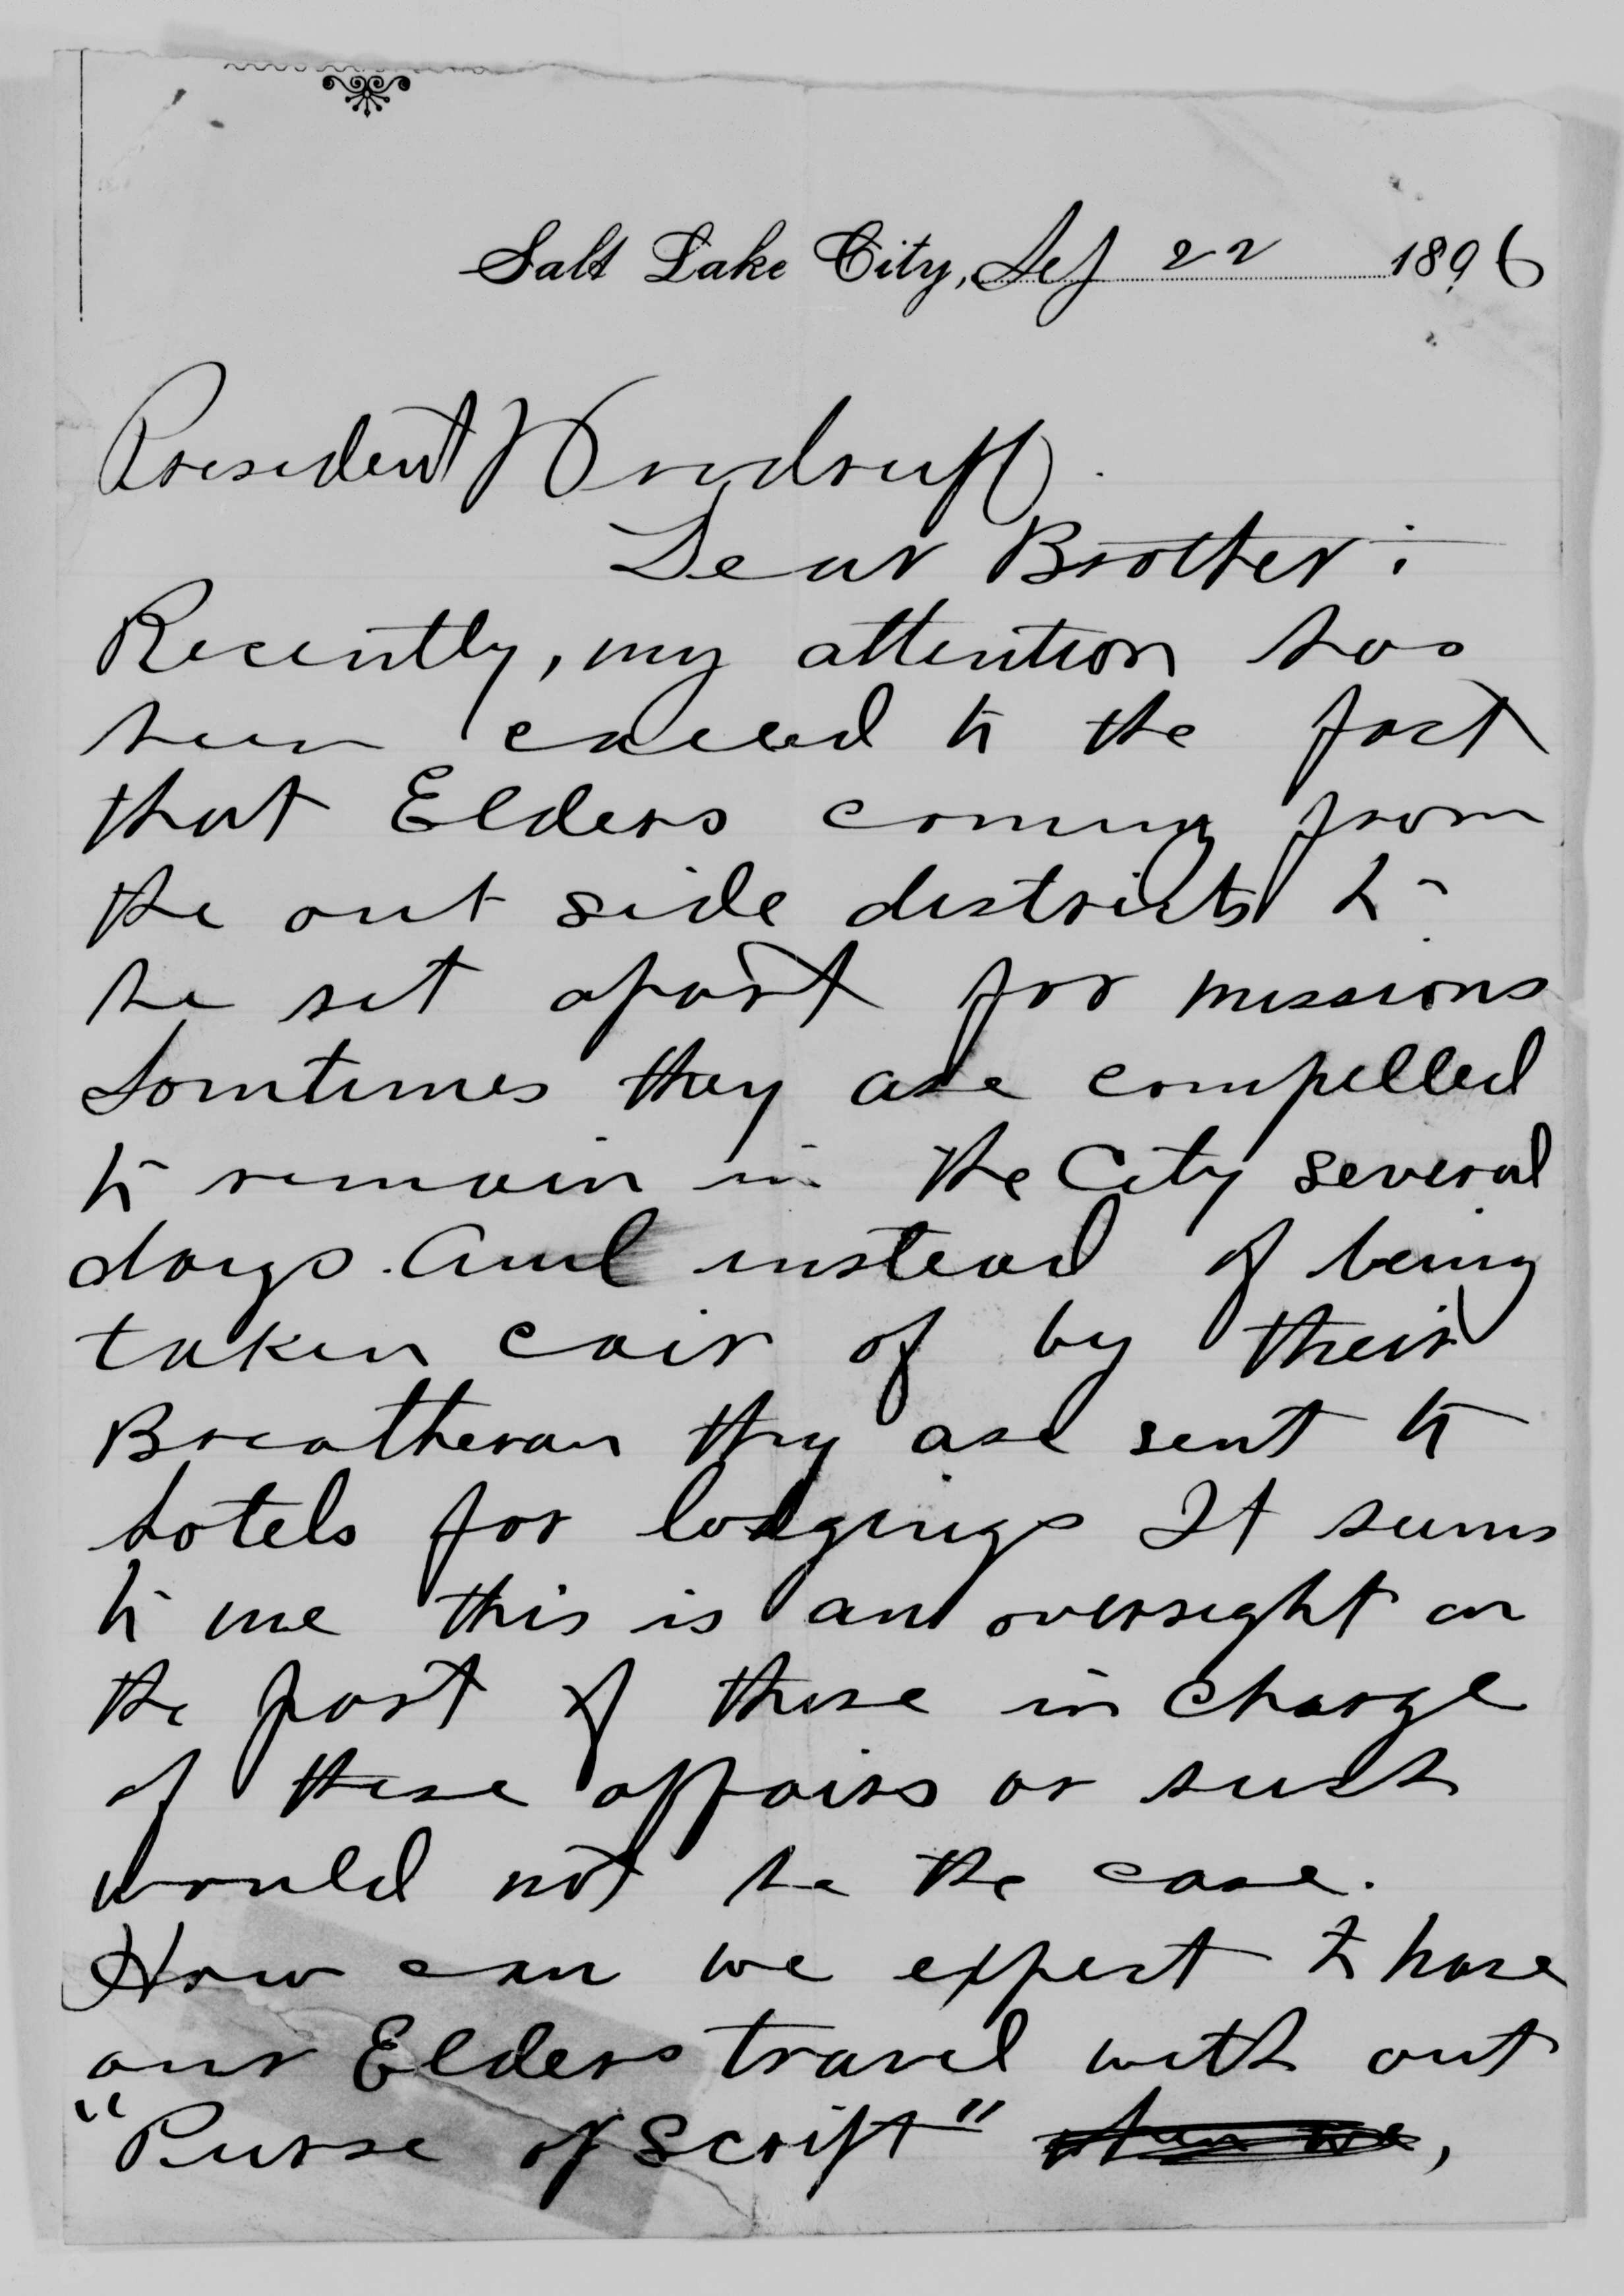 Salt Lake City, Sep 22 1896
President Woodruff.
Dear Brother:
Recently, my attention has
been called to the fact
that Elders coming from
the out side districts to
be set apart for missions
Somtimes they are compelled
to remain in the City several
days. And instead of being
taken cair of by their
Breatheran they are sent to
hotels for lodgings It seems
to me this is an oversight on
the part of those in charge
of these affairs or such
would not be the case.
How can we expect to have
our Elders travel with out
"Purse of Script" when we,